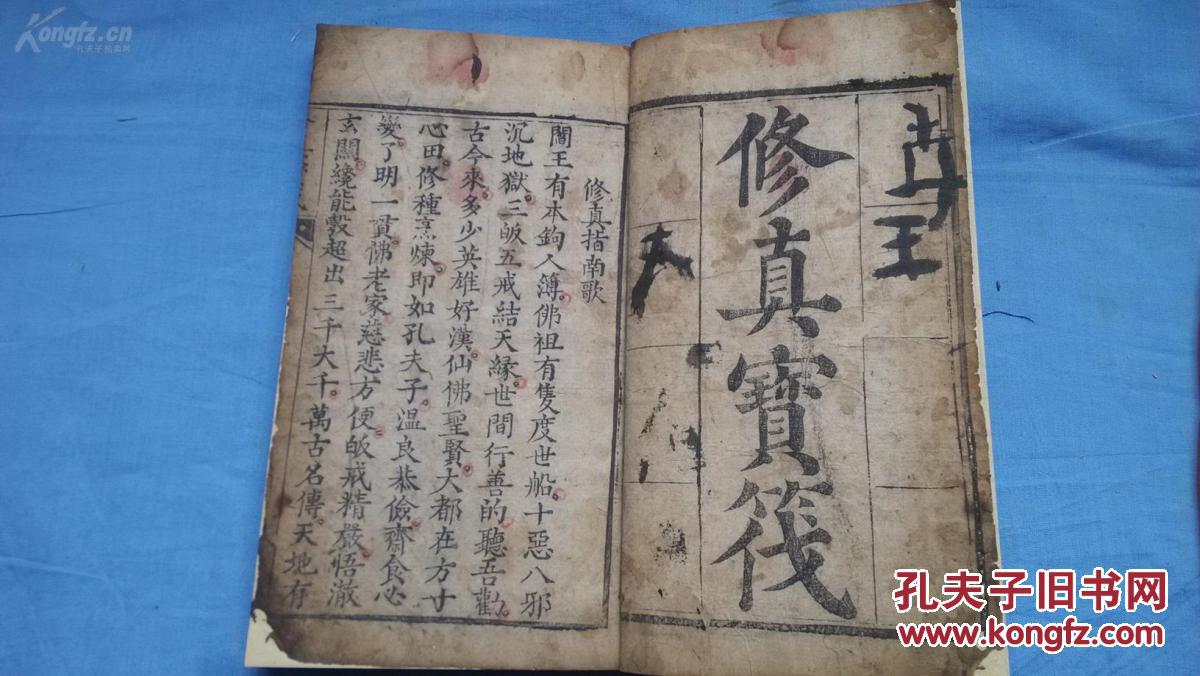 修真寶筏
王
修真指南歌
閻王有本鈎人簿。佛祖有隻度世船。十惡八邪
沉地獄。三皈五戒結天緣。世間行善的聽吾勸。
古今來。多少英雄好漢。仙佛聖賢。大都在方寸
心田。修種烹煉。即如孔夫子。温良恭儉。齋食必
變。了明一貫。佛老家。慈悲方便。皈戒精嚴。悟澈
玄關。纔能彀超出三千大千。萬古名傳。天地有
Kongfz.cn
孔夫子拍卖网
孔夫子旧书网
www.kongfz.com